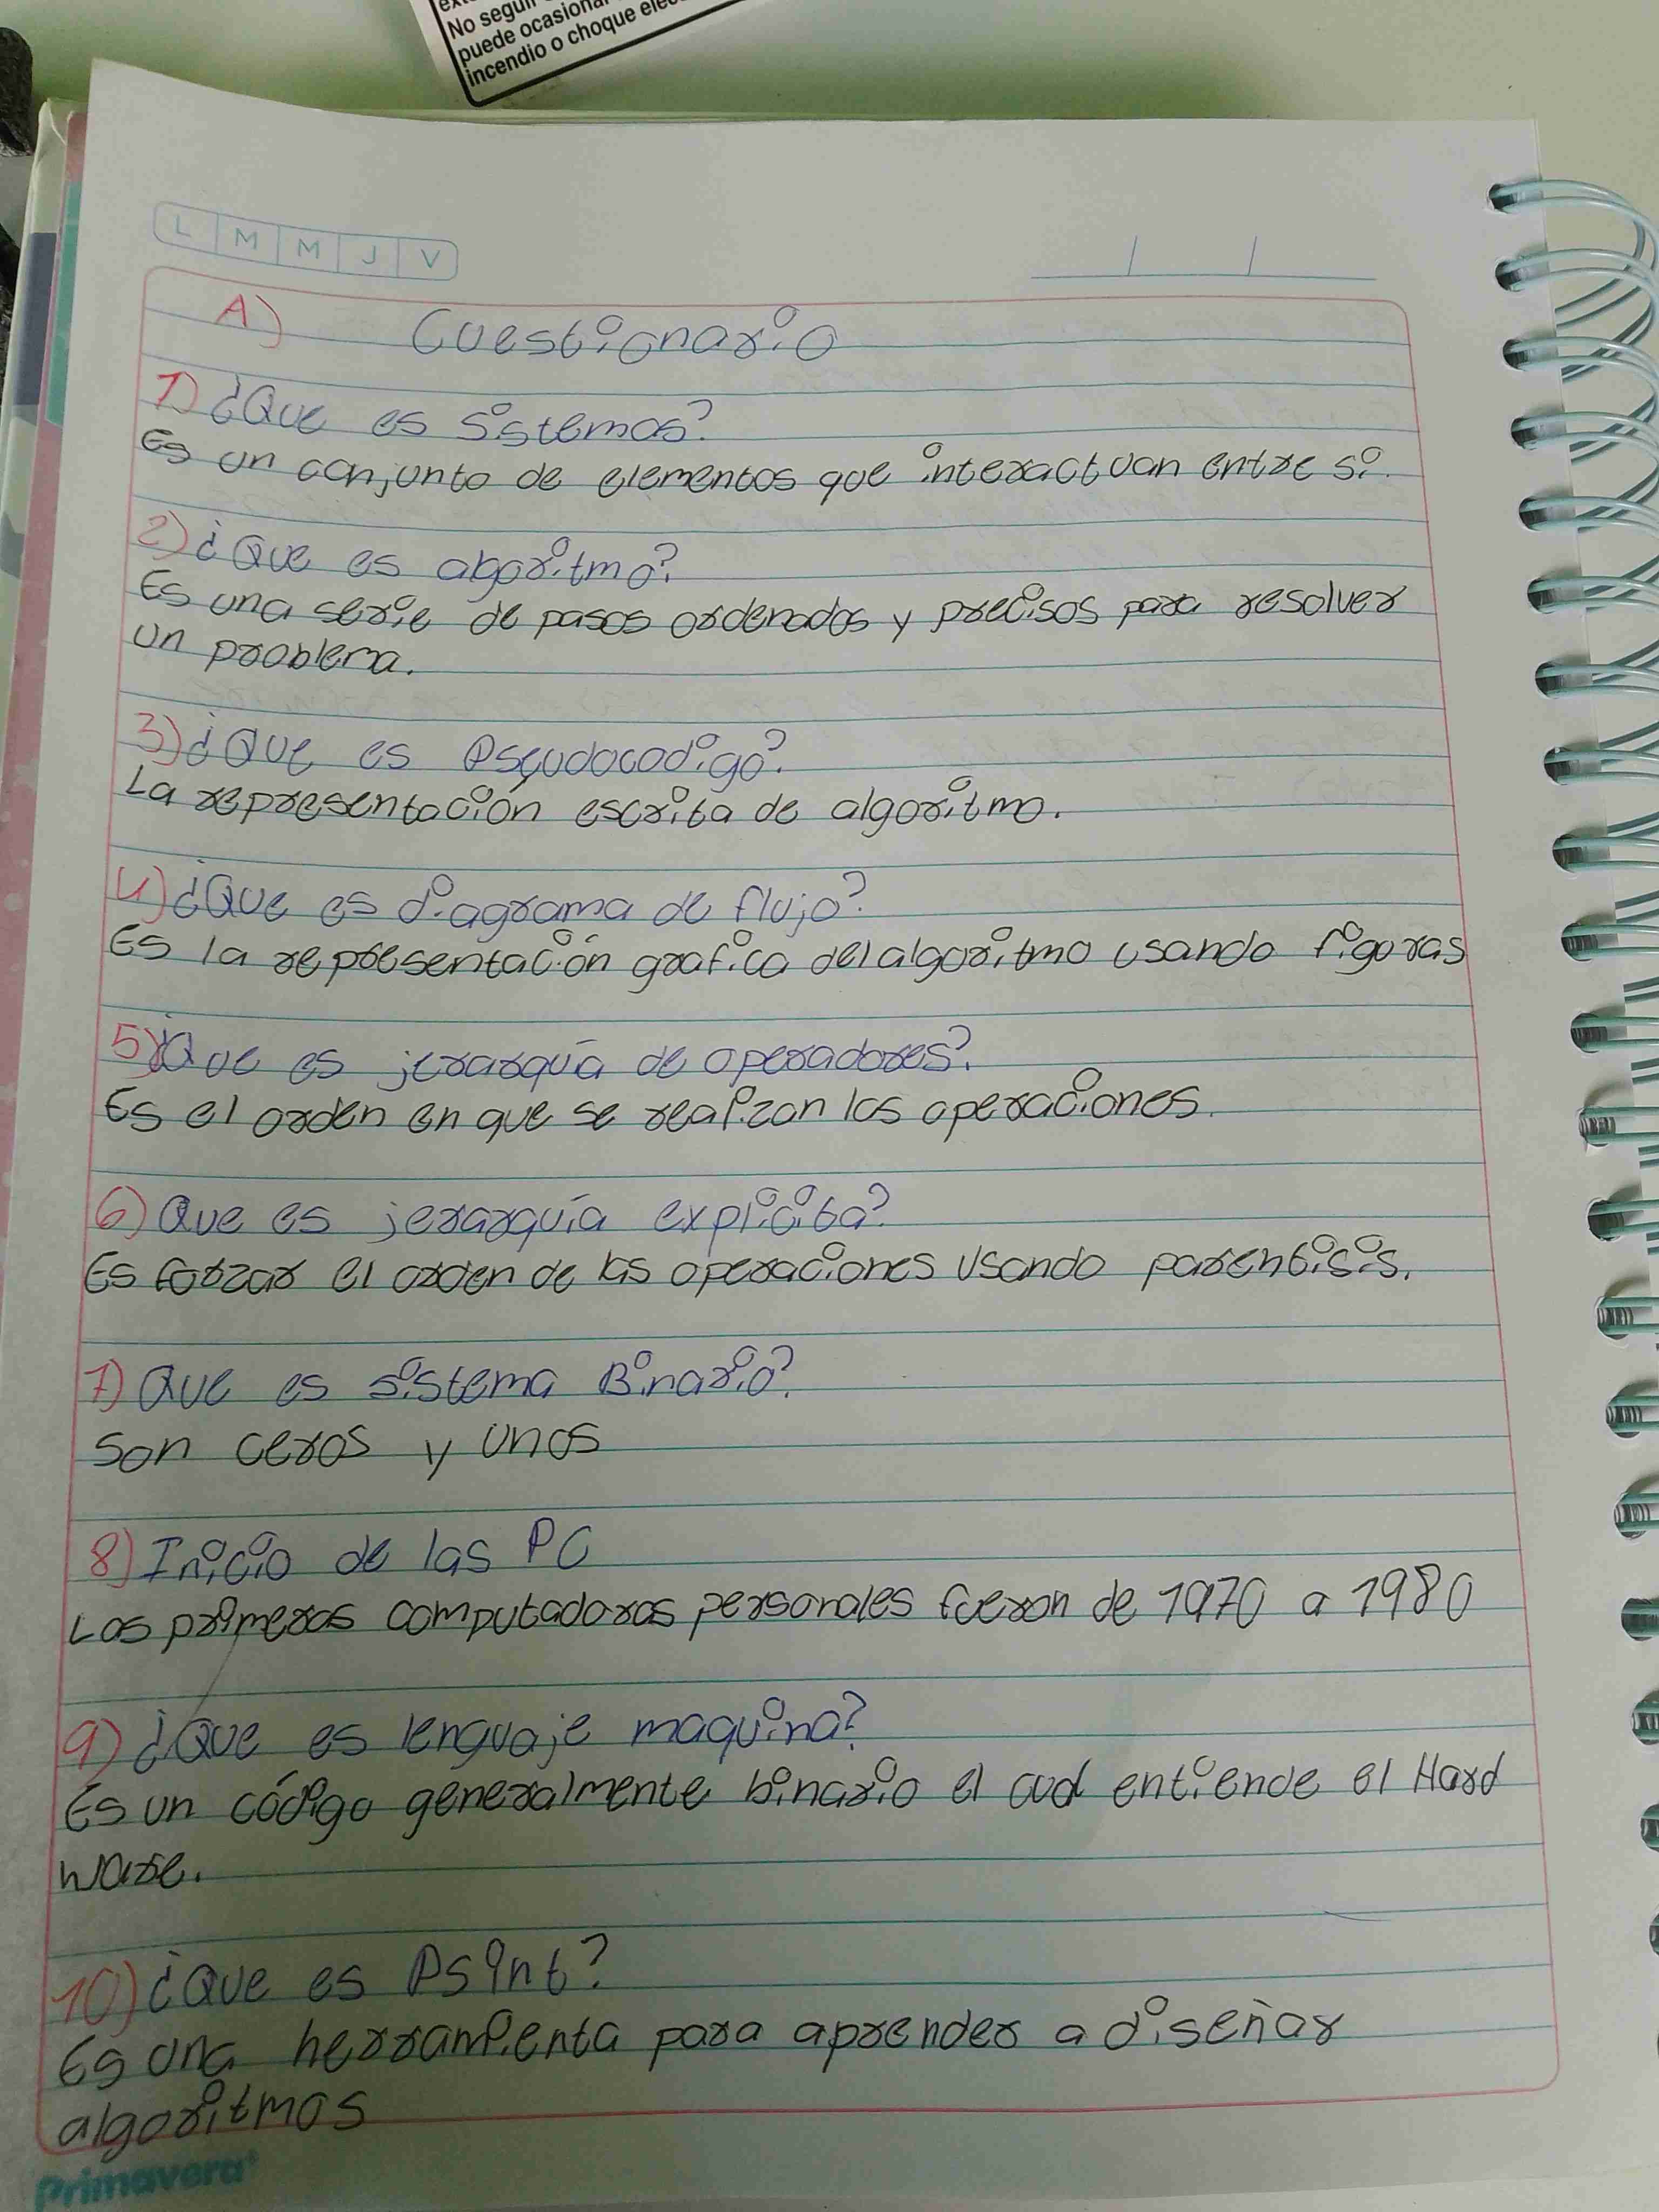 No seguir
puede ocasiona
incendio o choque elec
L M M J V
A) Cuestionario
1) ¿Que es Sistemas?
Es un conjunto de elementos que interactuan entre si.
2) ¿Que es algoritmo?
Es una serie de pasos ordenados y precisos para resolver
un problema.
3) ¿Que es Pseudocodigo?
La representación escrita de algoritmo.
4) ¿Que es diagrama de flujo?
Es la representación grafica del algoritmo usando figuras
5) ¿Que es jerarquía de operadores?
Es el orden en que se realizan las operaciones.
6) Que es jerarquía explicita?
Es forzar el orden de las operaciones usando parentisis.
7) Que es sistema Binario?
Son ceros y unos
8) Inicio de las PC
Las primeras computadoras personales fueron de 1970 a 1980
9) ¿Que es lenguaje maquina?
Es un código generalmente binario el cual entiende el Hard
ware.
10) ¿Que es PsInt?
Es una herramienta para aprender a diseñar
algoritmos
Primavera